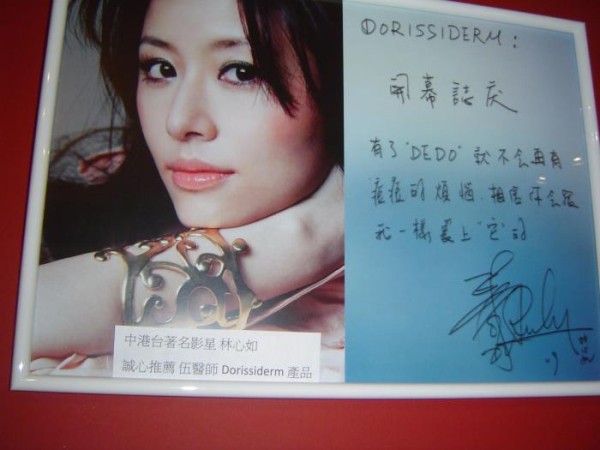 DORISSIDERM:
開幕誌庆
有了"DEDO"就不会再有
痘痘的煩惱.相信你会跟
我一樣爱上"它"的
Ruby
中港台著名影星 林心如
誠心推薦 伍醫師 Dorissiderm 產品